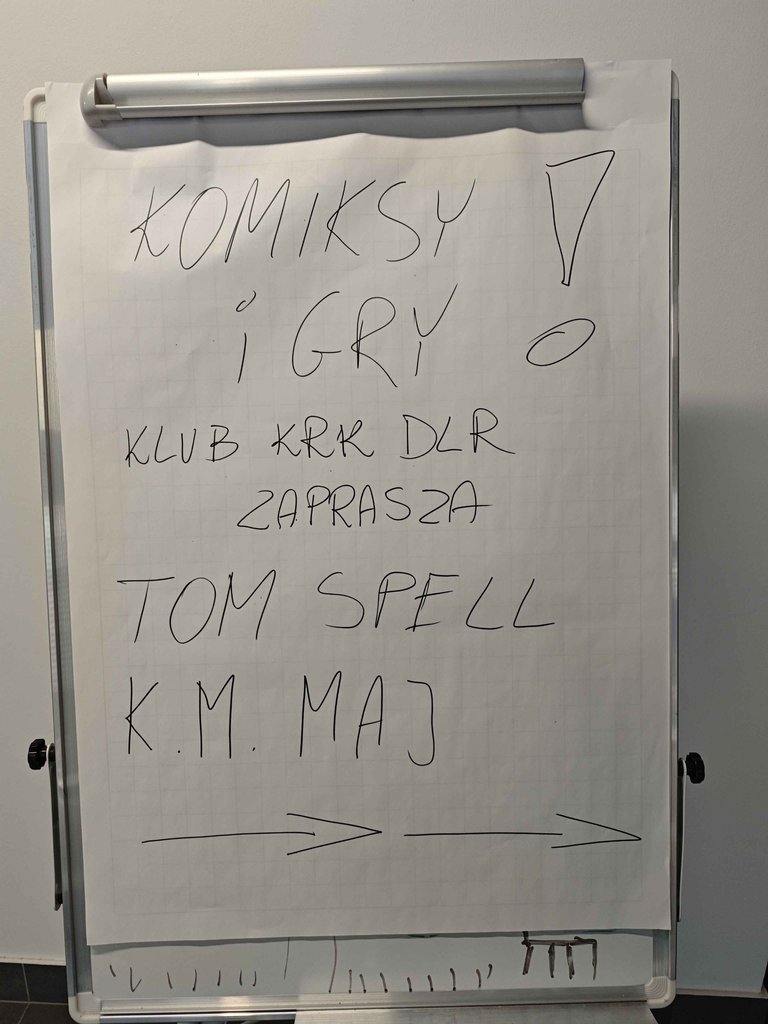 KOMIKSY !
i GRY
KLUB KRK DLR
ZAPRASZA
TOM SPELL
K.M. MAJ